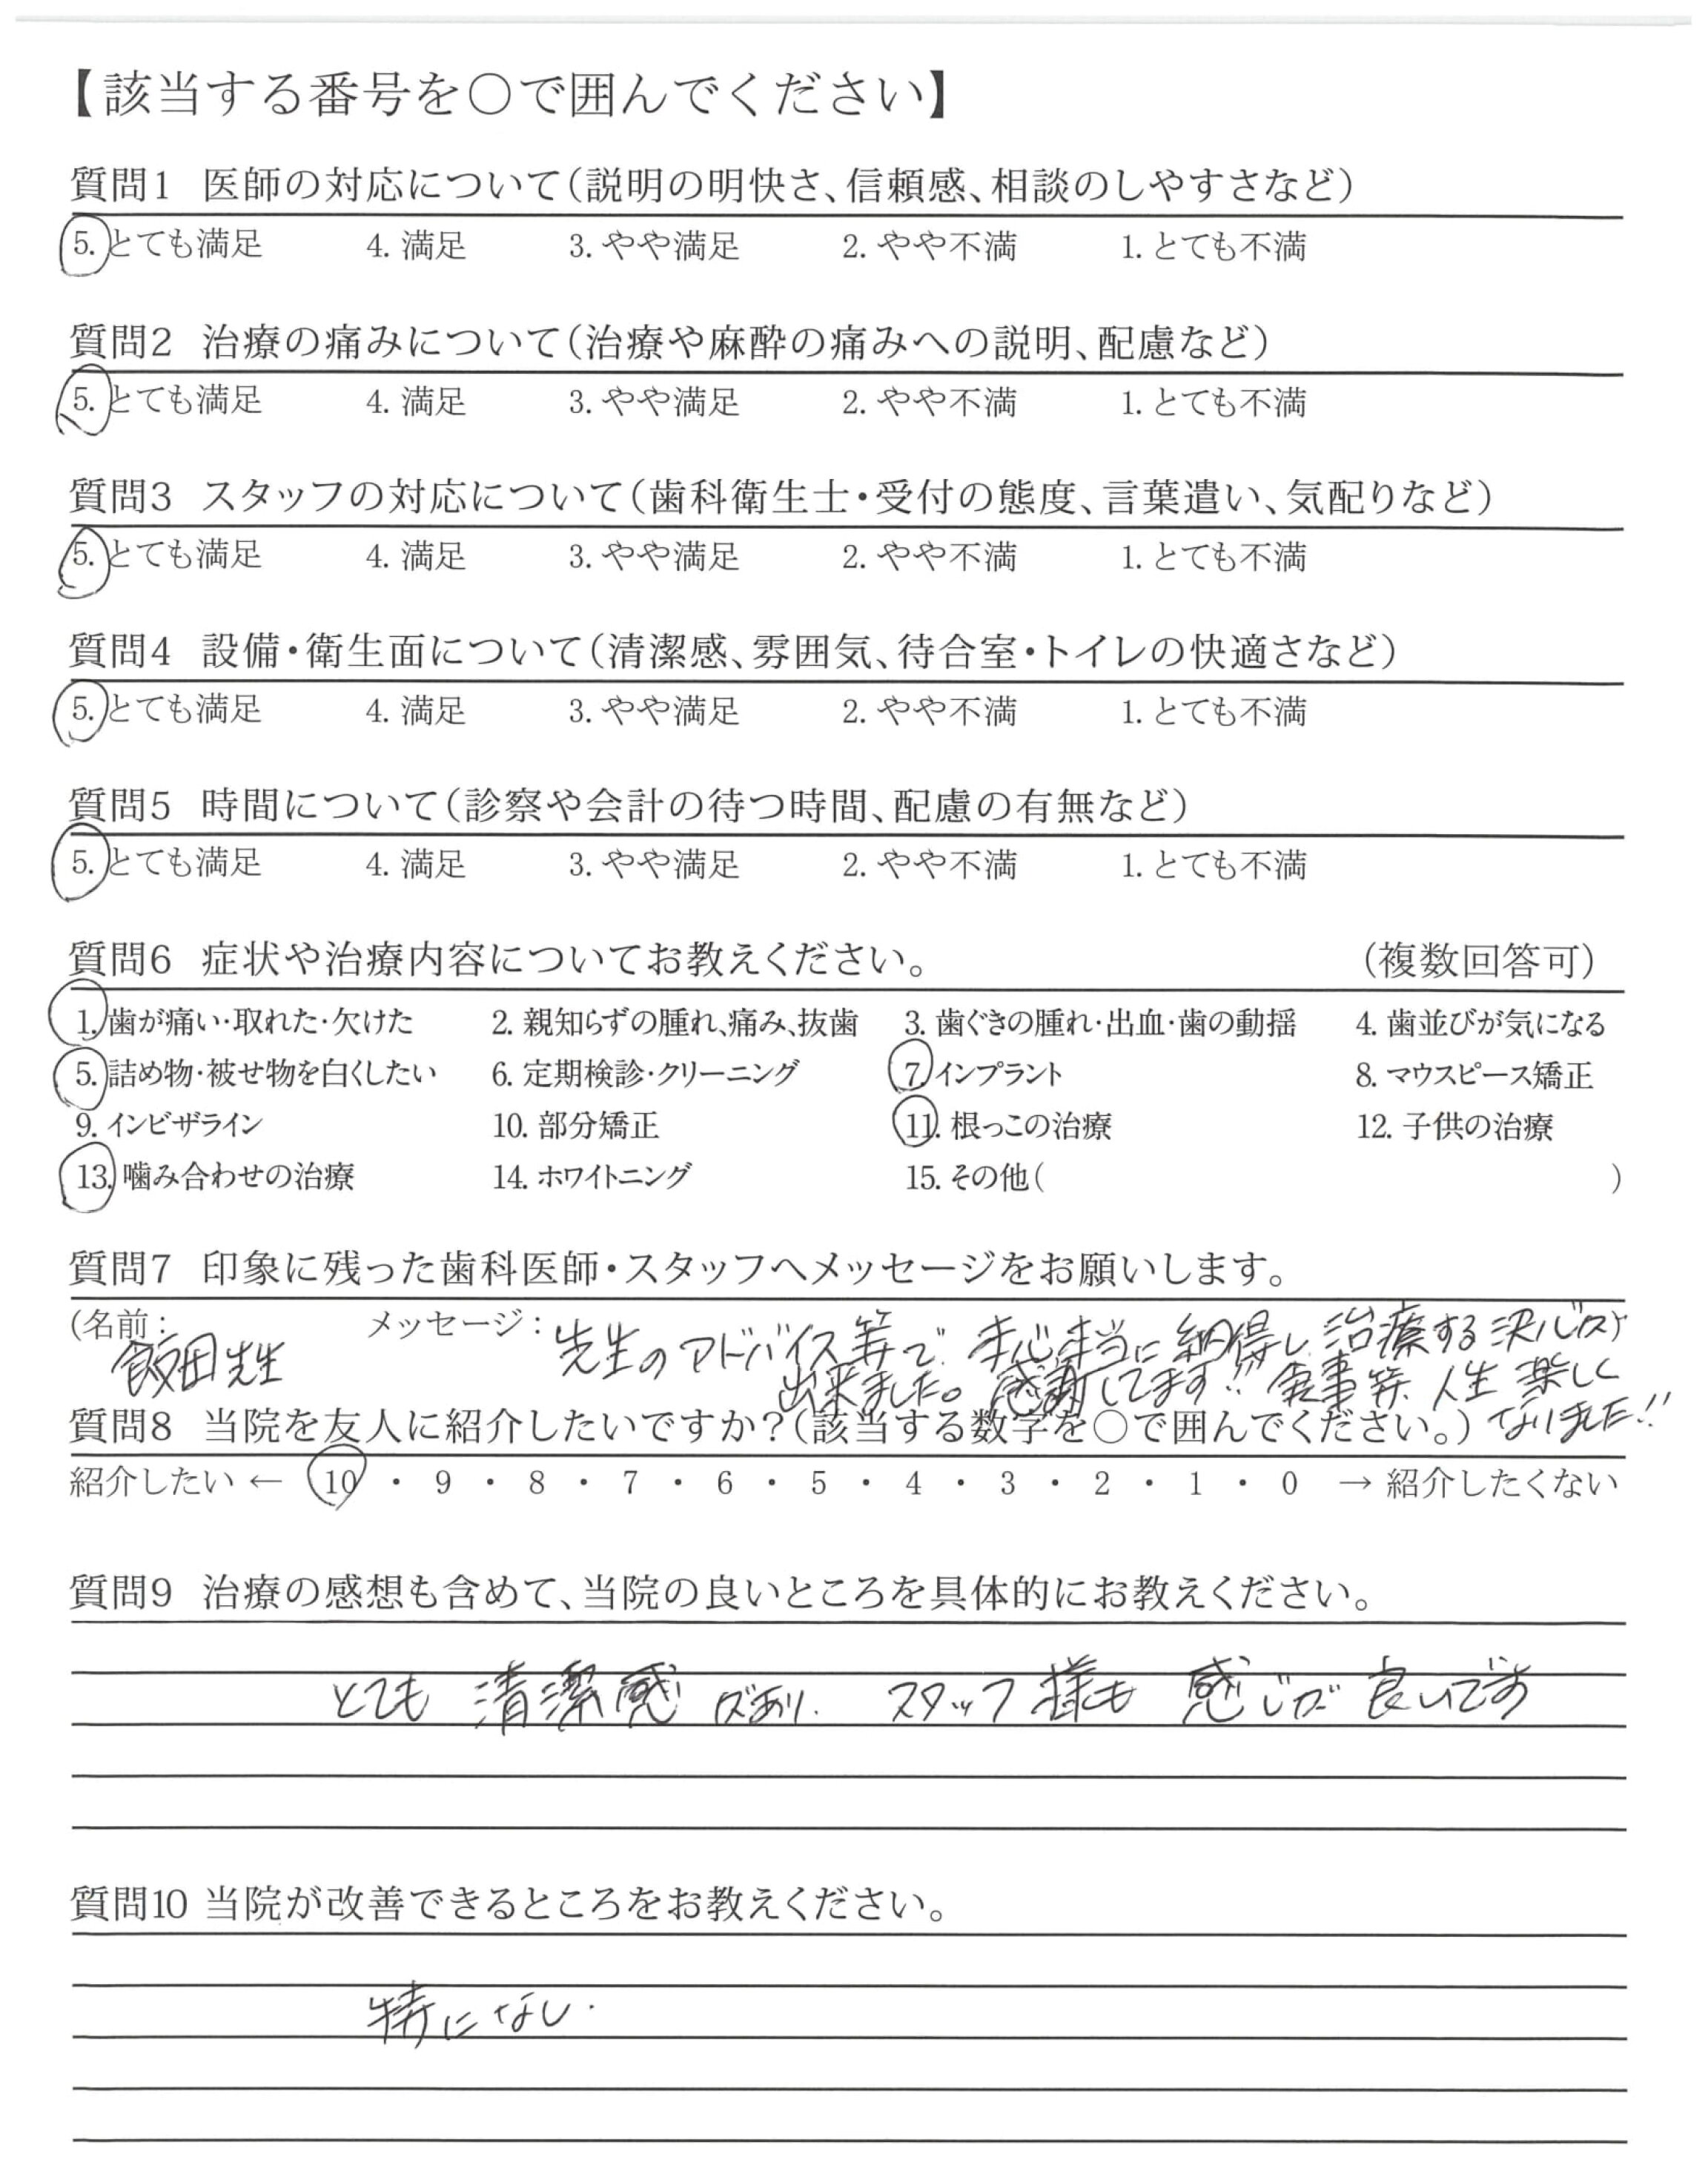 【該当する番号を○で囲んでください】
質問1 医師の対応について(説明の明快さ、信頼感、相談のしやすさなど)
5. とても満足 4. 満足 3. やや満足 2. やや不満 1. とても不満
質問2 治療の痛みについて(治療や麻酔の痛みへの説明、配慮など)
5. とても満足 4. 満足 3. やや満足 2. やや不満 1. とても不満
質問3 スタッフの対応について(歯科衛生士・受付の態度、言葉遣い、気配りなど)
5. とても満足 4. 満足 3. やや満足 2. やや不満 1. とても不満
質問4 設備・衛生面について(清潔感、雰囲気、待合室・トイレの快適さなど)
5. とても満足 4. 満足 3. やや満足 2. やや不満 1. とても不満
質問5 時間について(診察や会計の待つ時間、配慮の有無など)
5. とても満足 4. 満足 3. やや満足 2. やや不満 1. とても不満
質問6 症状や治療内容についてお教えください。 (複数回答可)
1. 歯が痛い・取れた・欠けた 2. 親知らずの腫れ、痛み、抜歯 3. 歯ぐきの腫れ・出血・歯の動揺 4. 歯並びが気になる
5. 詰め物・被せ物を白くしたい 6. 定期検診・クリーニング 7. インプラント 8. マウスピース矯正
9. インビザライン 10. 部分矯正 11. 根っこの治療 12. 子供の治療
13. 噛み合わせの治療 14. ホワイトニング 15. その他( )
質問7 印象に残った歯科医師・スタッフへメッセージをお願いします。
(名前: メッセージ: 先生のアドバイス等で 本当に納得し 治療する決心が
飯田先生 出来ました。感謝してます!! 食事等 人生 楽しく
質問8 当院を友人に紹介したいですか?(該当する数字を○で囲んでください。) なりました!!
紹介したい ← 10 ・ 9 ・ 8 ・ 7 ・ 6 ・ 5 ・ 4 ・ 3 ・ 2 ・ 1 ・ 0 → 紹介したくない
質問9 治療の感想も含めて、当院の良いところを具体的にお教えください。
とても 清潔感 があり. スタッフ 様も 感じが 良いです
質問10 当院が改善できるところをお教えください。
特になし.